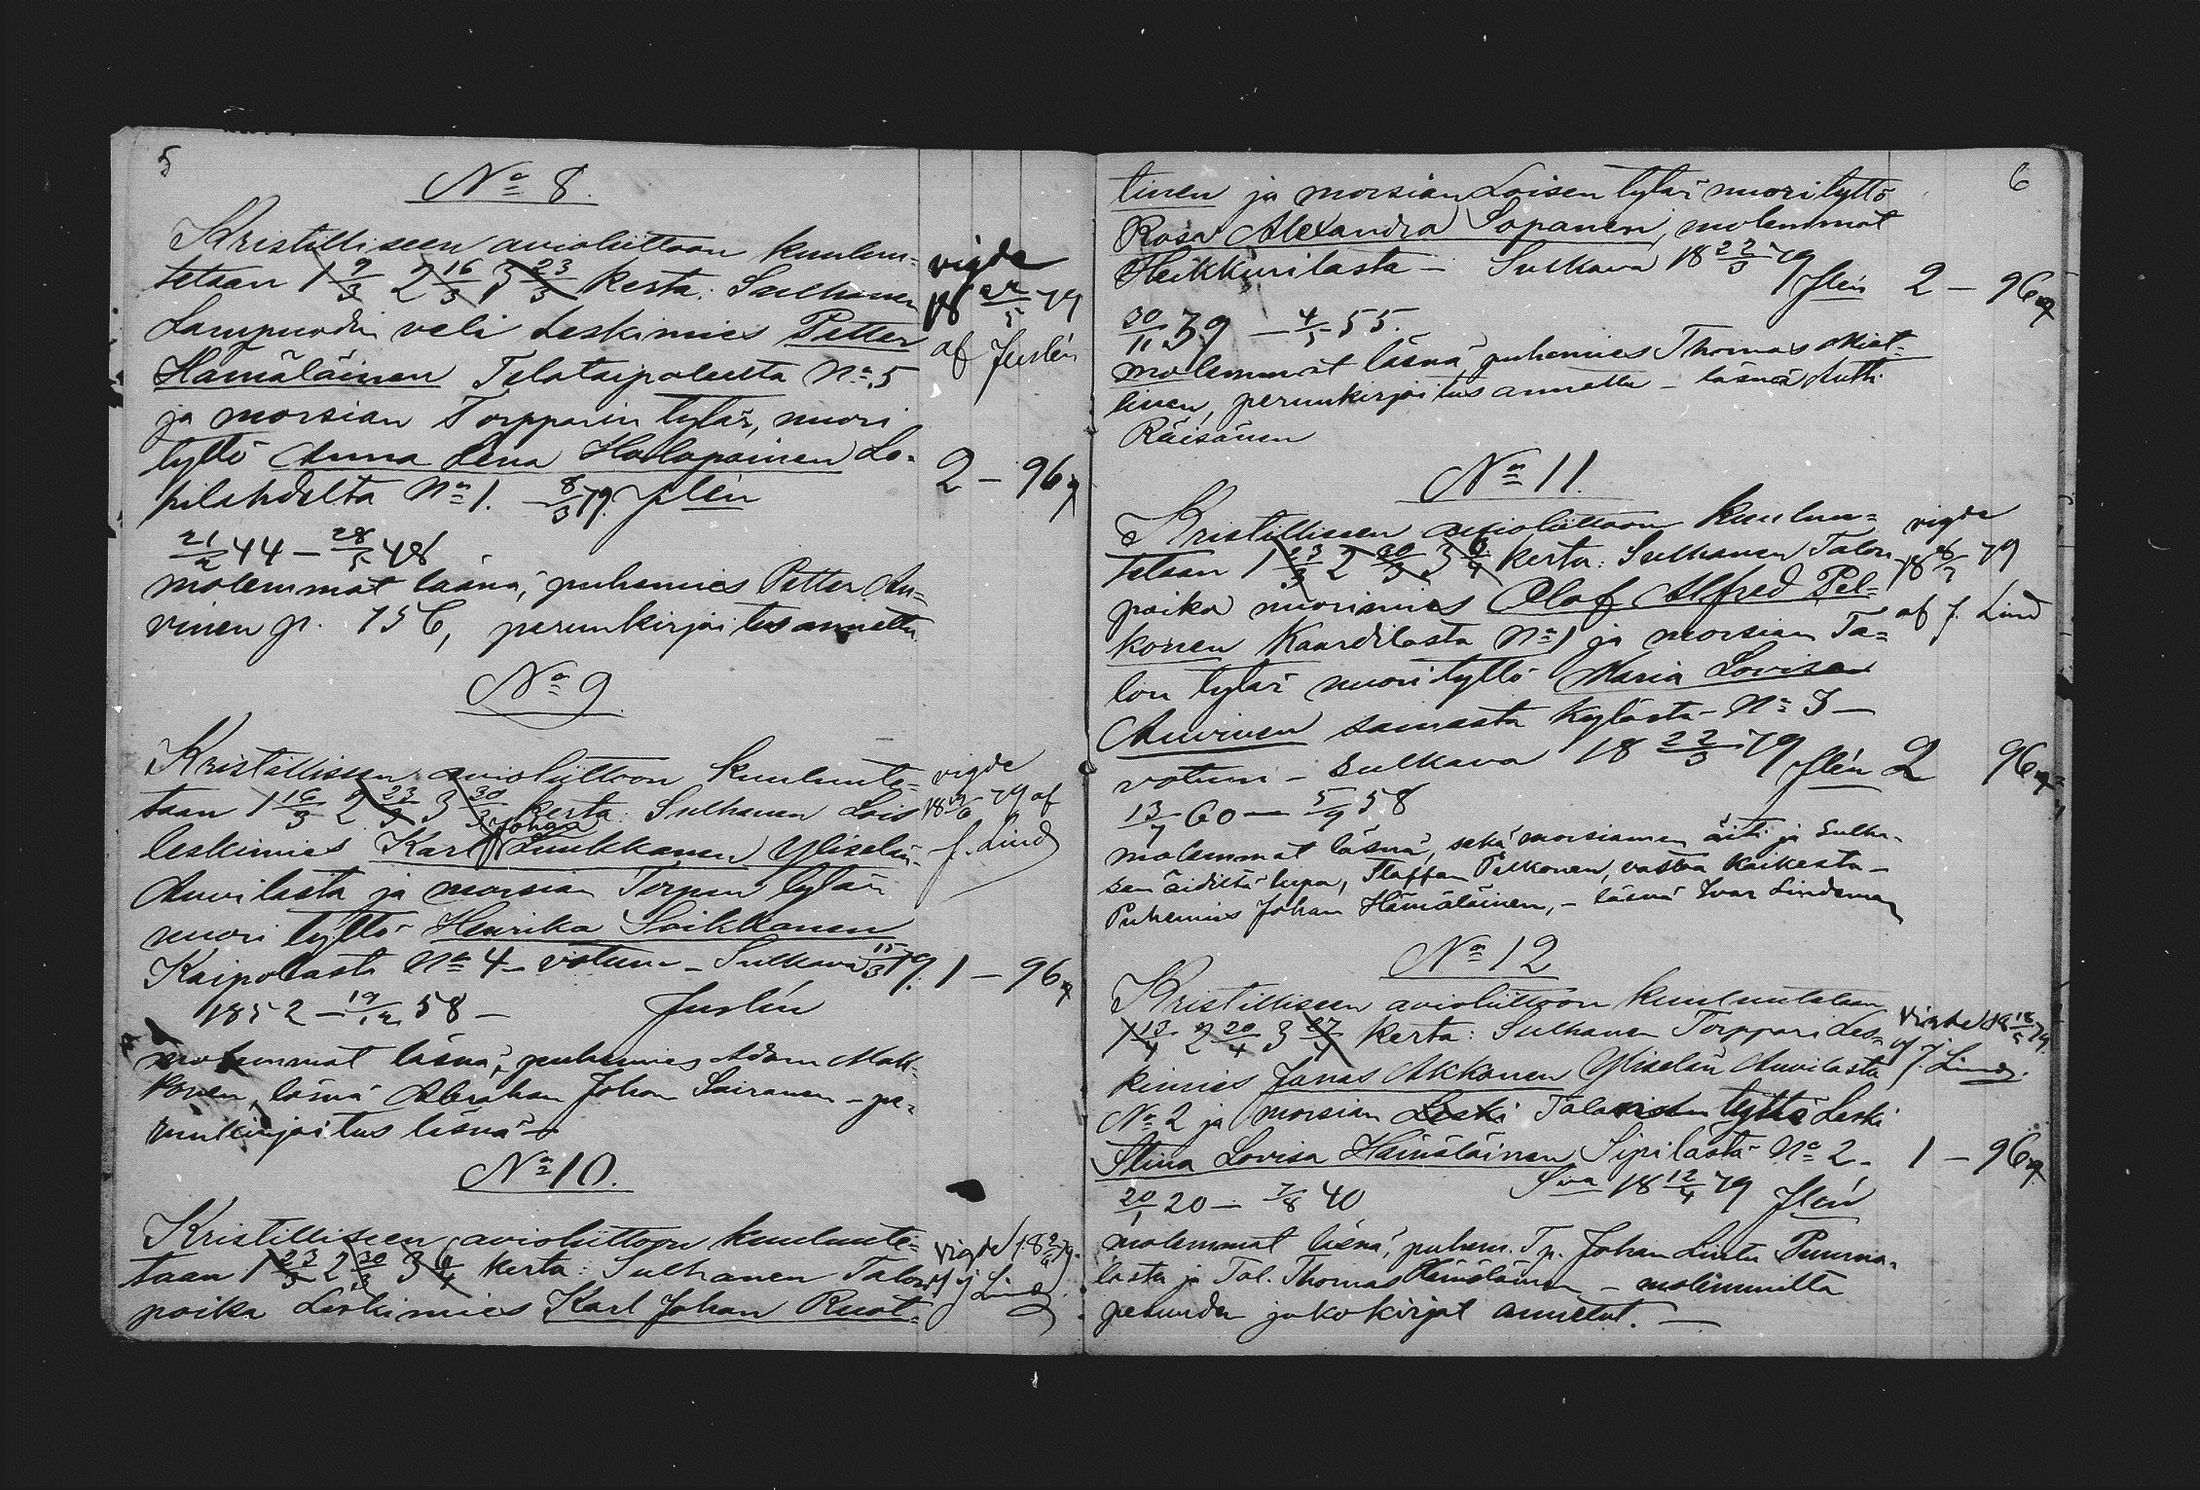 5
No 8.
Kristilliseen avioliittoon kuulu=
tetaan 1 9/3 2 16/3 3 23/3 kerta: Sulhanen
Lampuodin veli Leskimies Petter
Hämäläinen Telataipaleelta No 5
ja morsian Torpparin tytär, nuori
tyttö Anna Lena Halapainen Lo-
hilahdelta No 1. 8/3 79. Jlén
vigde
18 /5 79
af Juslén
2 – 96
21/2 44 – 28/5 48
molemmat läsnä, puhemies Petter Au=
vinen p. 156, perunkirjoitus annettu
No 9
Kristilliseen avioliittoon kuulute=
taan 1 16/3 2 23/3 3 30/3 kerta: Sulhanen Lois
Johan
leskimies Karl Luukkanen Ylisen
Auvilasta ja morsian Torpan tytär
nuori tyttö Henrika Loikkanen
Kaipolasta No 4 – votum – Sulkava 15/3 79.
1852 – 19/12 58 – Juslén
vigde
18 /6 79 af
J. Lind
1 – 96
molemmat läsnä, puhemies Adam Mak-
konen, läsnä Abraham Johan Sairanen – pe-
runkirjoitus läsnä –
No 10.
Kristilliseen avioliittoon kuulute=
taan 1 23/3 2 30/3 3 6/4 kerta: Sulhanen Talon
poika Leskimies Karl Johan Ruot-
vigde 18 79.
af J. Lind
6
tinen ja morsian Loisen tytär nuori tyttö
Rosa Alexandra Sopanen, molemmat
Heikkurilasta – Sulkava 18 22/3 79
Jlén 2 – 96
30/11 39 – 4/5 55.
molemmat läsnä, puhemies Thomas Miet-
tinen, perunkirjoitus annettu – läsnä Antti
Räisänen
No 11.
Kristilliseen avioliittoon kuulu=
tetaan 1 23/3 2 30/3 3 6/4 kerta: Sulhanen Talon
poika nuorimies Olof Alfred Pel=
konen Kaartilasta No 1 ja morsian Ta=
lon tytär nuori tyttö Maria Lovisa
Auvinen samasta kylästä No 3 –
votum – Sulkava 18 22/3 79 Jlén
vigde
18 79
af J. Lind
2 96
13/7 60 – 5/9 58
molemmat läsnä, sekä morsiamen äiti ja Sulha-
sen äidiltä lupa, Staffan Pelkonen, vastaa kaikesta –
Puhemies Johan Hämäläinen, – läsnä Ivar Lindeman
No 12
Kristilliseen avioliittoon kuulutetaan
1 13/4 2 20/4 3 27/4 kerta: Sulhanen Torppari Les=
kimies Jonas Akkanen Ylisen Auvilasta
No 2 ja morsian Leski Talon tyttö Leski
Stina Lovisa Hämäläinen Sipilästä No 2.
Sva 18 12/4 79 Jlén
vigde 18 79.
af J. Lind.
1 – 96
20/1 20 – 7/8 40
molemmat läsnä, puhem. Tp. Johan Lintu Purma-
lasta ja Tal. Thomas Hämäläinen – molemmilta
perunden jakokirjat annetut. –